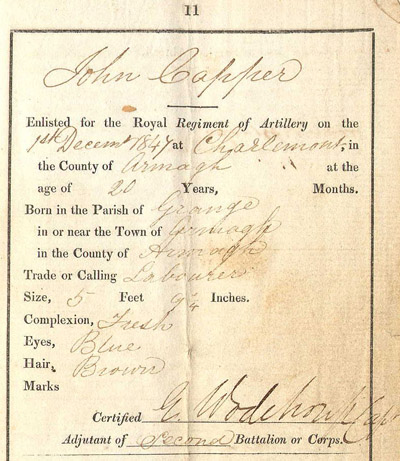 11
John Capper
Enlisted for the Royal Regiment of Artillery on the
1st Decemr 1847 at Charlemont, in
the County of Armagh at the
age of 20 Years, Months.
Born in the Parish of Grange
in or near the Town of Armagh
in the County of Armagh
Trade or Calling Labourer
Size, 5 Feet 9 1/4 Inches.
Complexion, Fresh
Eyes, Blue
Hair, Brown
Marks
Certified E. Wodehouse Capt
Adjutant of Second Battalion or Corps.